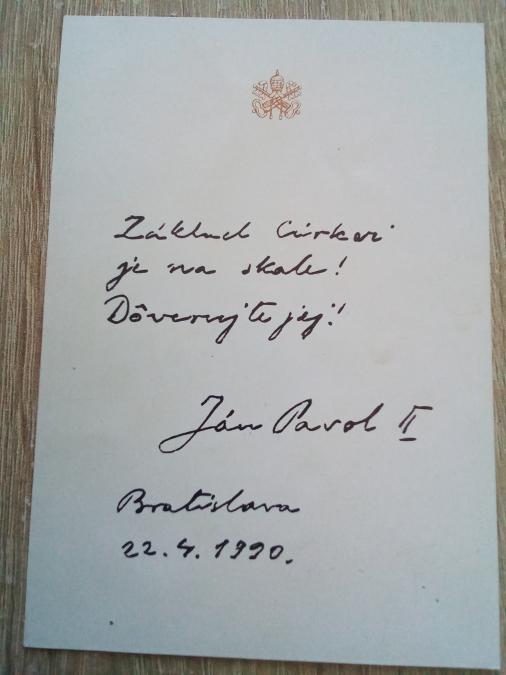 Základ Cirkvi
je na skale!
Dôverujte jej!
Ján Pavol II
Bratislava
22.4.1990.